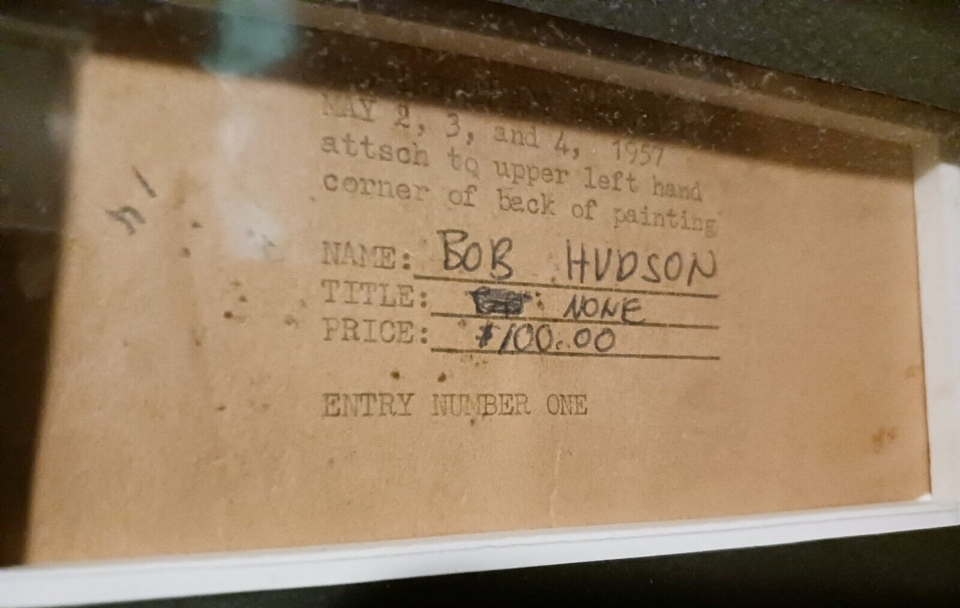 MAY 2, 3, and 4, 1957
attsch to upper left hand
corner of back of painting
NAME: BOB HUDSON
TITLE: NONE
PRICE: $100.00
ENTRY NUMBER ONE
14